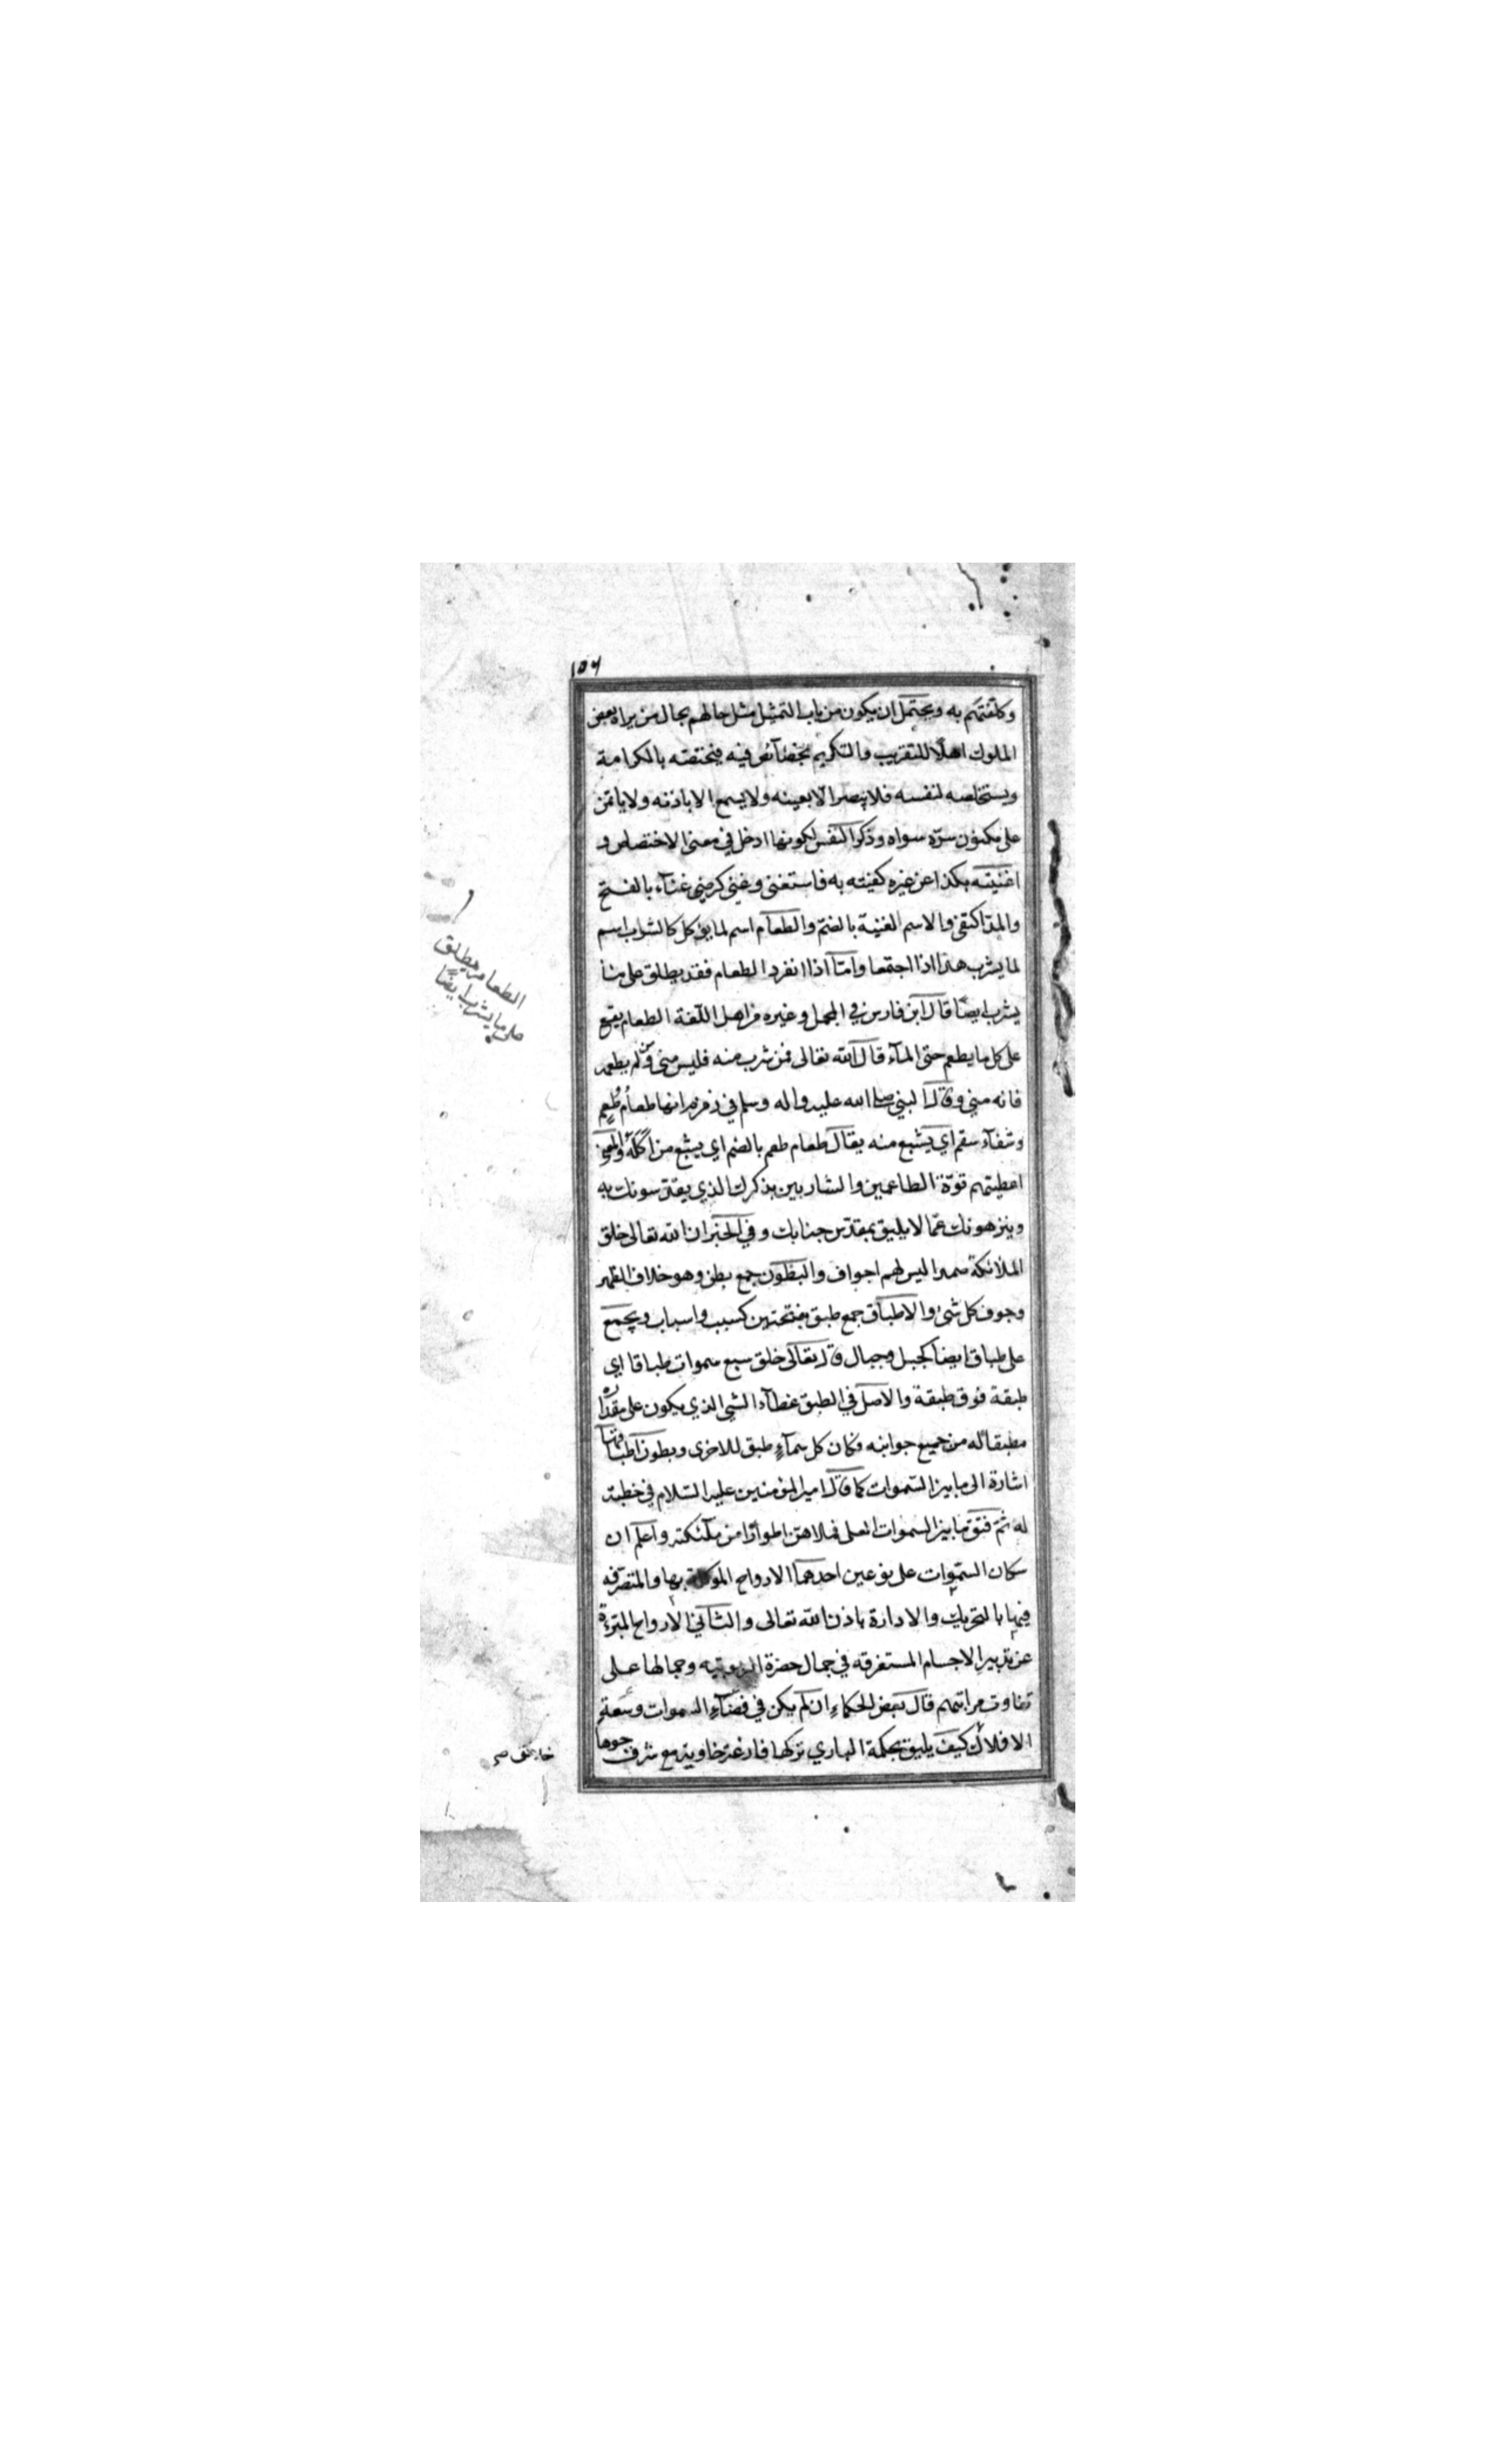 ١٥٦
وكلّفتهم به ويحتمل ان يكون من باب التمثيل مثل حالهم بحال من يراه بعض
الملوك اهلاً للتقريب والتكريم بخصآئص فيه فيختصّه بالكرامة
ويستخلصه لنفسه فلا يبصر الّا بعينه ولا يسمع الا باذنه ولا ياتمن
على مكنون سرّه سواه وذكر النفس لكونها ادخل في معنى الاختصاص و
اغنيته بكذا عن غيره كفيته به فاستغنى وغني كرضي غنآء بالفتح
والمدّ اكتفى والاسم الغنية بالضمّ والطعام اسم لما يؤكل كالشراب اسم
لما يشرب هذا اذا اجتمعا وامّا اذا انفرد الطعام فقد يطلق على ما
يشرب ايضًا قال ابن فارس في المجمل وغيره من اهل اللّغة الطعام يقع
على كل ما يطعم حتى المآء قال الله تعالى فمن شرب منه فليس مني ومن لم يطعمه
فانه مني وقال النبي صلى الله عليه واله وسلم في زمزم انها طعام طُعمٍ
وشفآء سقم اي يشبع منه يقال طعام طعم بالضم اي يشبع من اكله والمعنى
اعطيتهم قوّة الطاعمين والشاربين بذكرك الذي يقدّسونك به
وينزهونك عمّا لا يليق بمقدّس جنابك وفي الخبر ان الله تعالى خلق
الملائكة صمدا ليس لهم اجواف والبطون جمع بطن وهو خلاف الظهر
وجوف كل شيء والاطباق جمع طبق بفتحتين كسبب واسباب ويجمع
على طباق ايضا كجبل وجبال قال تعالى خلق سبع سموات طباقا اي
طبقة فوق طبقة والاصل في الطبق غطآء الشي الذي يكون على مقداره
مطبقا له من جميع جوانبه فكان كل سمآءٍ طبق للاخرى وبطون اطباقها
اشارة الى ما بين السّموات كما قال امير المؤمنين عليه السّلام في خطبة
له ثمّ فتق ما بين السموات العلى فملاهنّ اطوارًا من ملآئكته واعلم ان
سكان السّموات على نوعين احدهما الارواح الموكلة بها والمتصرّفه
فيها بالتحريك والادارة باذن الله تعالى والثاني الارواح المبرّءة
عن تدبير الاجسام المستغرقه في جمال حضرة الربوبيه وجمالها على
تفاوت مراتبهم قال بعض الحكماءِ ان لم يكن في فضآءِ السموات وسعة
الافلاك كيف يليق بحكمة الباري تركها فارغة خاوية مع شرف جوهرها
الطعام يطلق
على ما يشرب ايضًا